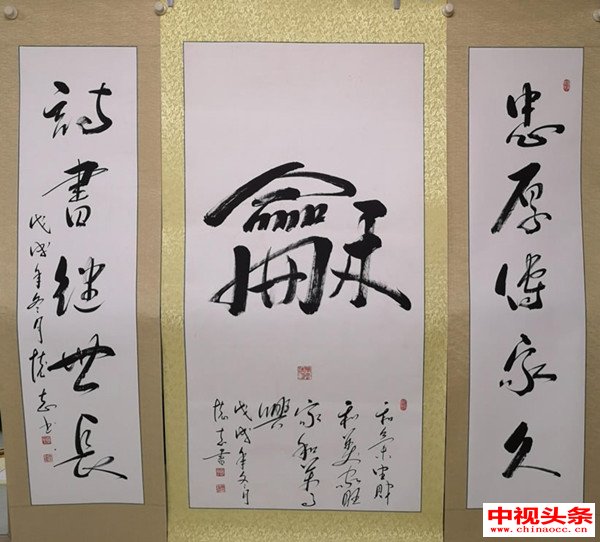 忠厚傳家久
龢
和美家旺
家和萬事
興
戊戌年冬月
志書
詩書继世長
戊戌年冬月 志书
中视头条
www.chinaocc.cn